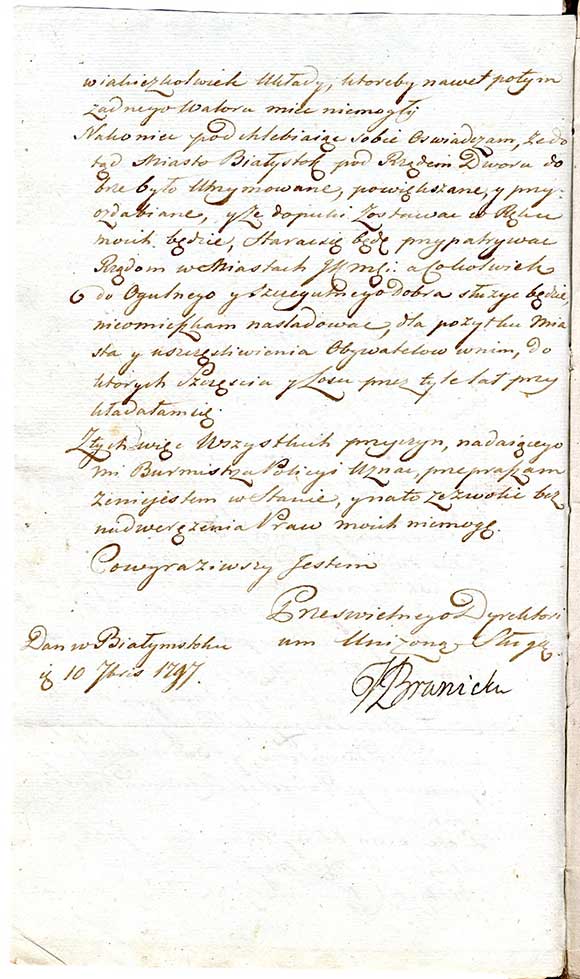 wiakieżkolwiek Układy, ktoreby nawet potym
żadnego Waloru miec niemogły
Nakoniec podchlebiaiąc sobie Oswiadczam, że do
tąd Miasto Białystok pod Rządem Dworu do
brze było Utrzymowane, powiększane, y przy-
ozdabiane, y że dopuki zostawac w Ręku
moich będzie, Starac się będę przypatrywac
Rządom w Miastach JKMći: a Cokolwiek
do Ogulnego y szczegulnego dobra służyc będzie,
nieomieszkam nasladować, dla pożytku Mia
sta y uszczęsliwienia Obywatelow w nim, do
ktorych Szczęscia y Losu przez tyle lat przy
kładałam się.
Z tych więc Wszystkich przyczyn, nadaiącego
mi Burmistrza Policyi Uznac, przepraszam
że nie jestem w Stanie, y na to zezwolic bez
nadwerężenia Praw moich niemogę.
Co wyraziwszy Jestem
Przeswietnego Dyrektori
um Uniżoną Sługą.
Dan w Białymstoku
10 7bris 1797.
Branicka